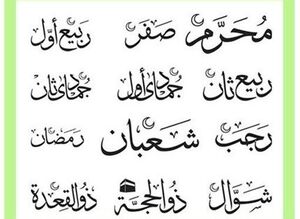 مُحَرَّم صَفَر ربيع أوّل
ربيع ثان جمادى أول جمادى ثان
رجب شَعبان رمضان
شوّال ذو الحجّة ذو القعدة